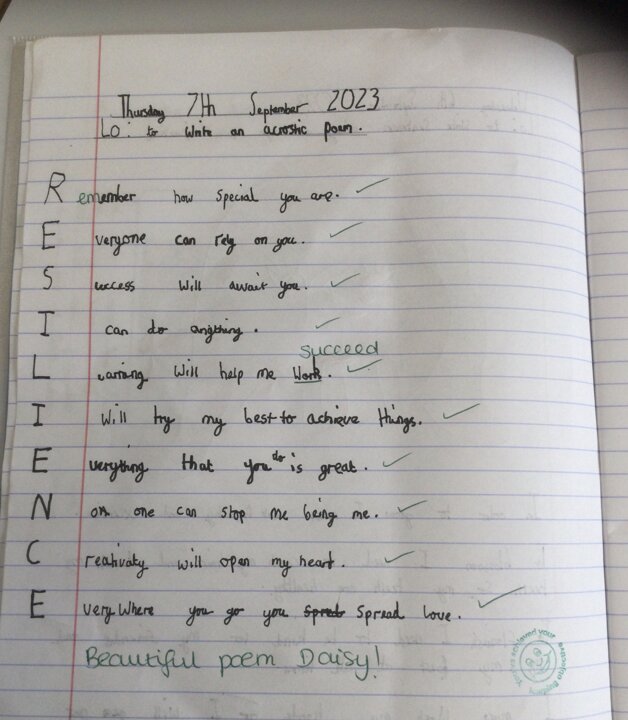 Thursday 7th September 2023
LO: to write an acrostic poem.
Remember how special you are.
Everyone can rely on you.
Success will await you.
I can do anything.
succeed
Larning will help me Work.
I will try my best to achieve things.
Everything that you do is great.
N on one can stop me being me.
Creativaty will open my heart.
Every Where you go you spred spread love.
Beautiful poem Daisy!
You've achieved your learning objective